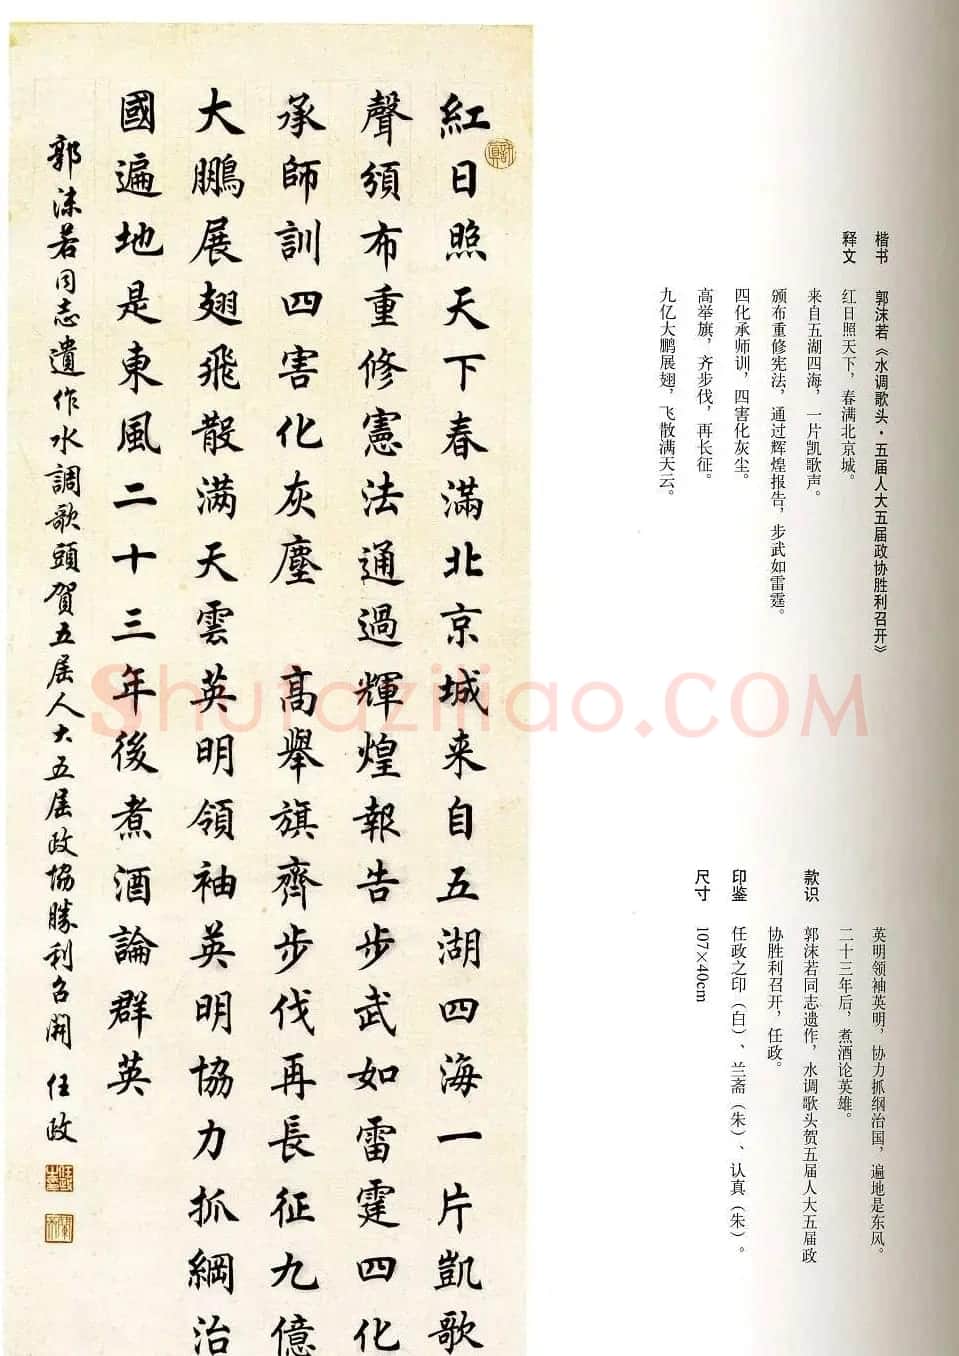 紅日照天下春滿北京城来自五湖四海一片凱歌
聲頒布重修憲法通過輝煌報告步武如雷霆四化
承師訓四害化灰塵 高舉旗齊步伐再長征九億
大鵬展翅飛散满天雲英明領袖英明協力抓綱治
國遍地是東風二十三年後煮酒論群英
郭沫若同志遺作水調歌頭賀五届人大五届政協勝利召開 任政
楷书 郭沫若《水调歌头·五届人大五届政协胜利召开》
释文 红日照天下，春满北京城。
来自五湖四海，一片凯歌声。
颁布重修宪法，通过辉煌报告，步武如雷霆。
四化承师训，四害化灰尘。
高举旗，齐步伐，再长征。
九亿大鹏展翅，飞散满天云。
英明领袖英明，协力抓纲治国，遍地是东风。
二十三年后，煮酒论英雄。
款识 郭沫若同志遗作，水调歌头贺五届人大五届政
协胜利召开，任政。
印鉴 任政之印（白）、兰斋（朱）、认真（朱）。
尺寸 107×40cm
Shufaziliao.COM